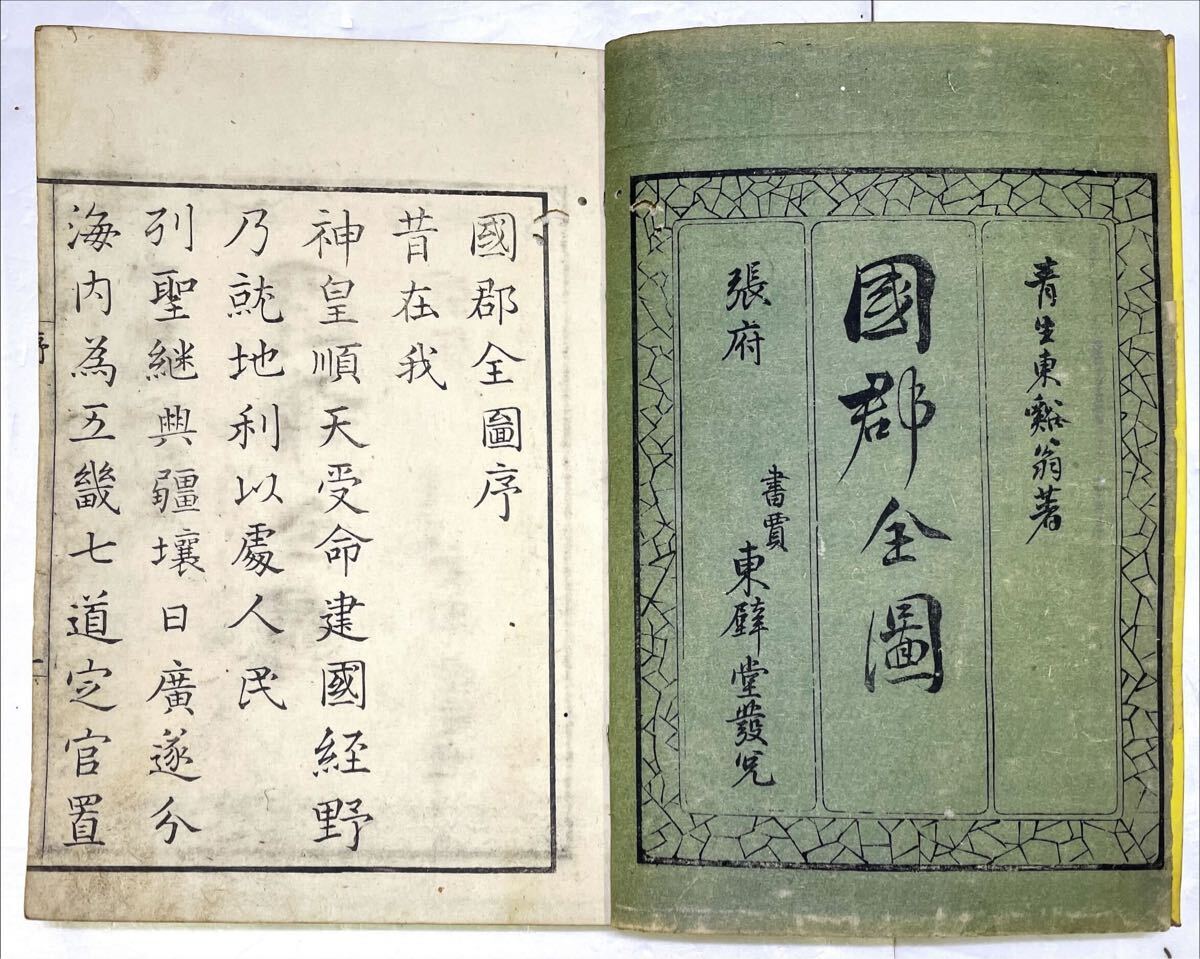 青生東谿翁著
國郡全圖
張府
書賈
東壁堂發兌
國郡全圖序
昔在我
神皇順天受命建國經野
乃就地利以處人民
列聖継興疆壤日廣遂分
海內為五畿七道定官置
序